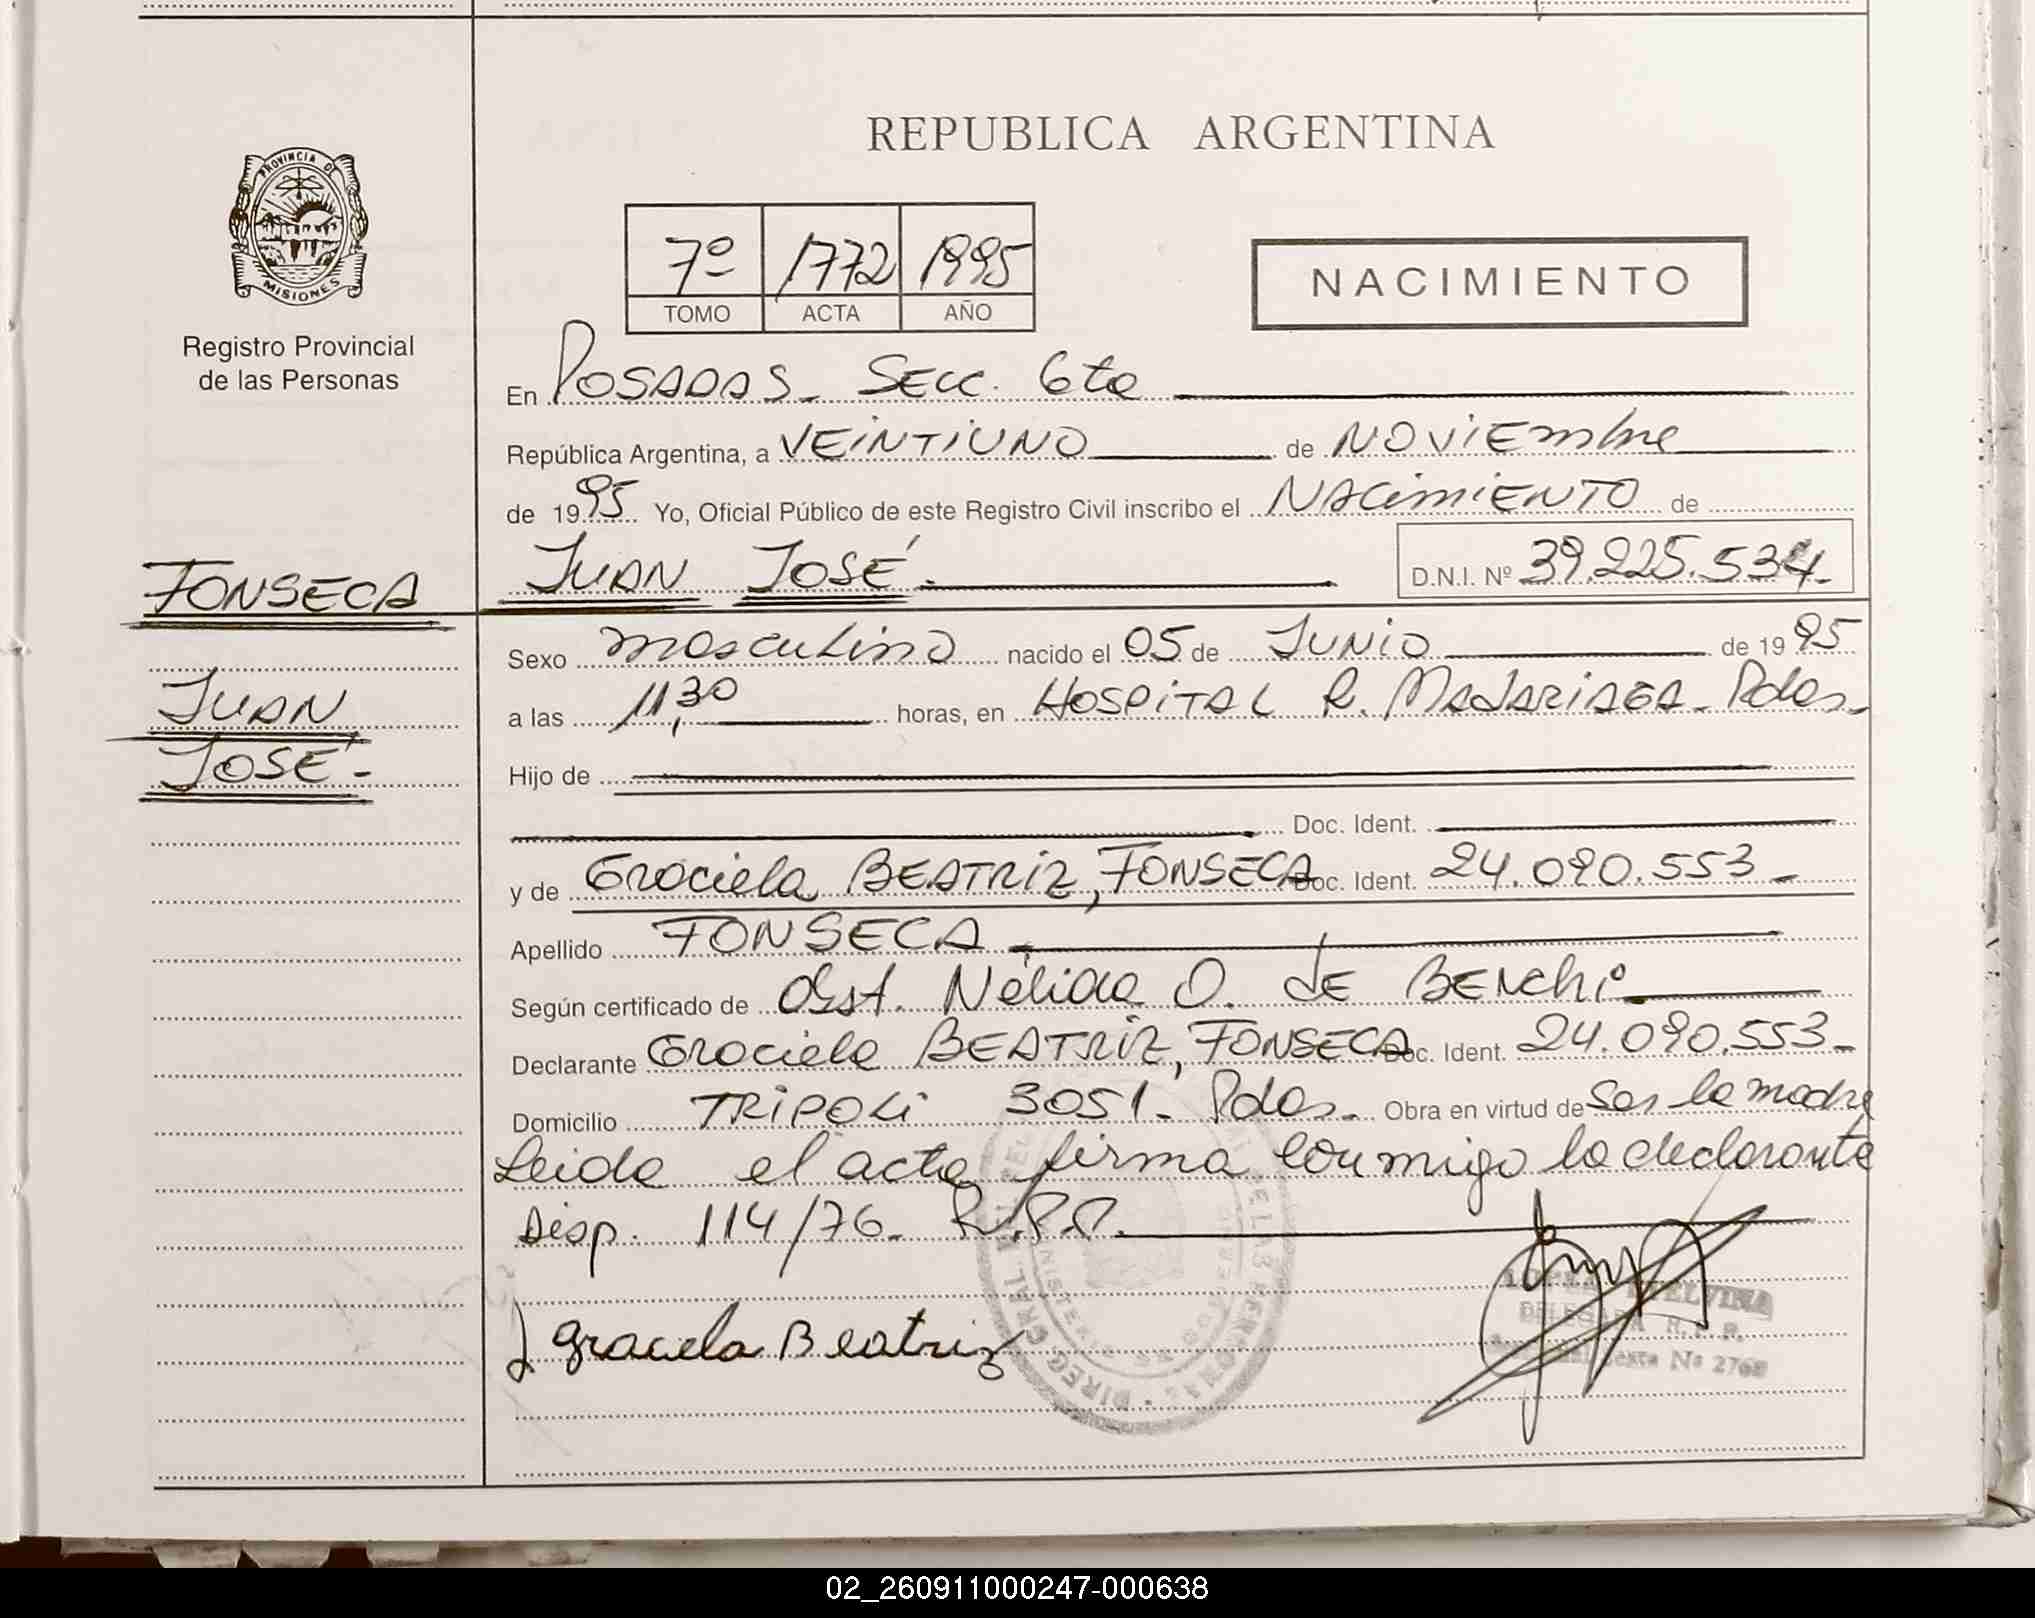 REPUBLICA ARGENTINA
PROVINCIA DE
MISIONES
Registro Provincial
de las Personas
7º 1772 1995
TOMO ACTA AÑO
NACIMIENTO
En POSADAS - SECC. 6ta
República Argentina, a VEINTIUNO de NOVIEmbre
de 1995 Yo, Oficial Público de este Registro Civil inscribo el NACIMIENTO de
FONSECA
JUAN JOSÉ.
D.N.I. Nº 39.225.534.
Sexo masculino nacido el 05 de JUNIO de 1995
JUAN
a las 11,30 horas, en HOSPITAL R. MADARIAGA - Pdas.
JOSÉ.-
Hijo de
Doc. Ident.
y de Graciela BEATRIZ, FONSECA Doc. Ident. 24.090.553 -
Apellido FONSECA.
Según certificado de Obst. Nélida O. de BENchi
Declarante Graciela BEATRIZ, FONSECA Doc. Ident. 24.090.553 -
Domicilio TRIPOLI 3051 - Pdas. Obra en virtud de Ser la madre
Leida el acta firma conmigo la declarante
Disp. 114/76 - R.P.P.
DELEGADA R.P.P.
Sexta Nº 2768
Graciela Beatriz
DIREC. GRAL. DEL REG. DE LAS PERSONAS
MINISTERIO DE GOBIERNO
02_260911000247-000638